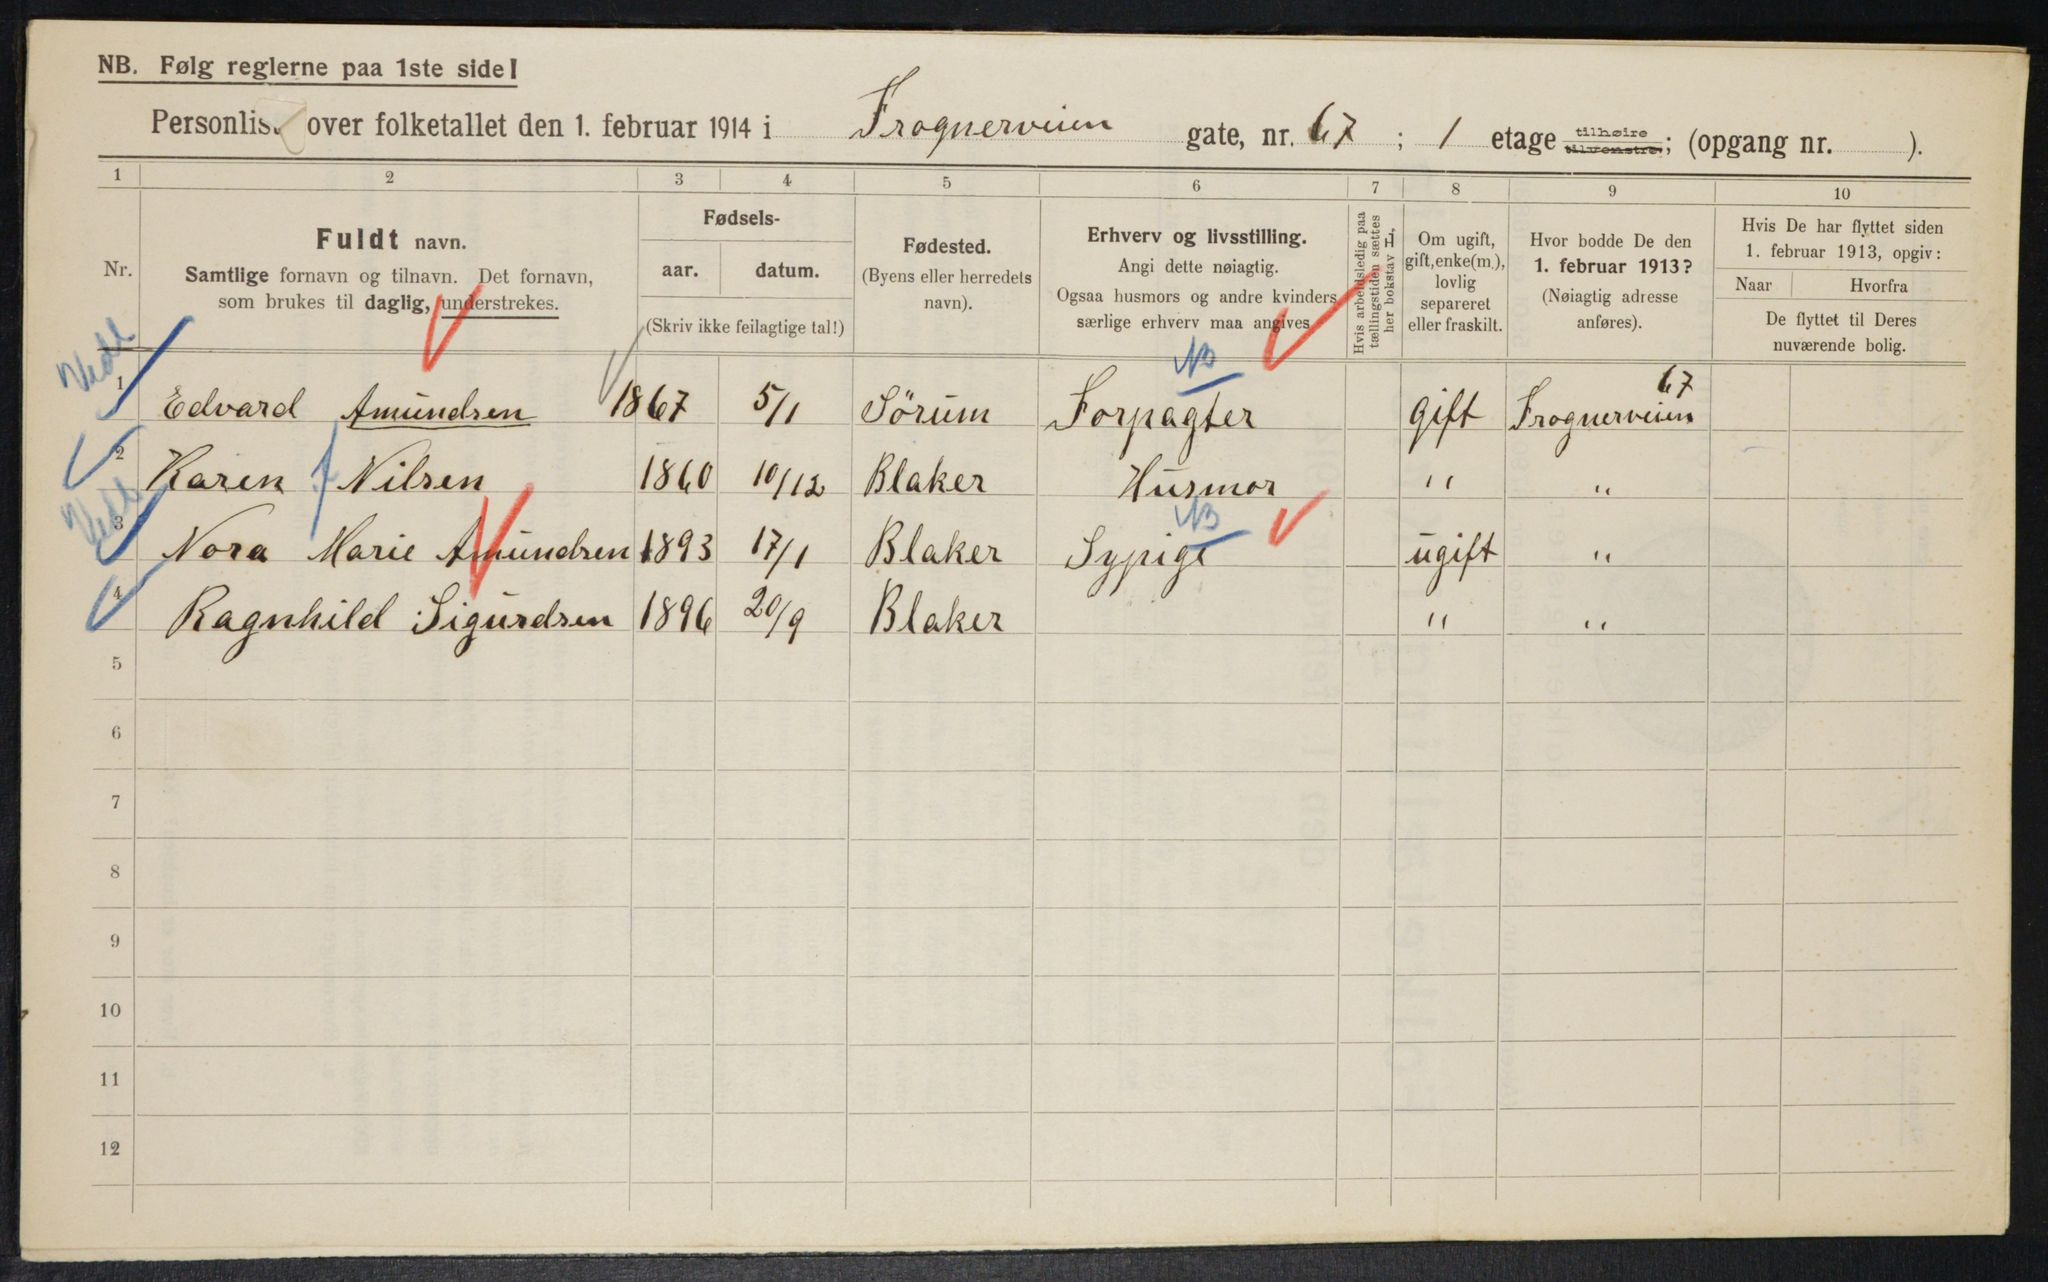 NB. Følg reglerne paa 1ste side!
Personlis over folketallet den 1. februar 1914 i Frognerveien gate, nr. 67; 1 etage tilhøire tilvenstre; (opgang nr. ).
1 2 3 4 5 6 7 8 9 10
Nr.
Fuldt navn.
Samtlige fornavn og tilnavn. Det fornavn,
som brukes til daglig, understrekes.
Fødsels-
aar. datum.
(Skriv ikke feilagtige tal!)
Fødested.
(Byens eller herredets
navn).
Erhverv og livsstilling.
Angi dette nøiagtig.
Ogsaa husmors og andre kvinders
særlige erhverv maa angives
Hvis arbeidsledig paa
tællingstiden sættes
her bokstav L,
Om ugift,
gift, enke(m.),
lovlig
separeret
eller fraskilt.
Hvor bodde De den
1. februar 1913?
(Nøiagtig adresse
anføres).
Hvis De har flyttet siden
1. februar 1913, opgiv:
Naar Hvorfra
De flyttet til Deres
nuværende bolig.
NB
67
1 Edvard Amundsen 1867 5/1 Sörum Forpagter gift Frognerveien
2 Karen Nilsen 1860 10/12 Blaker Husmor " "
NB
3 Nora Marie Amundsen 1893 17/1 Blaker Sypige ugift "
4 Ragnhild Sigurdsen 1896 20/9 Blaker " "
5
6
7
8
9
10
11
12